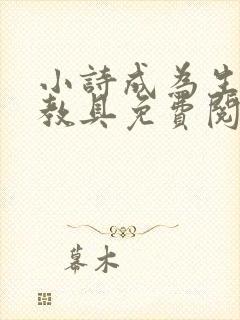 小詩成為生
教具免費閱
幕木